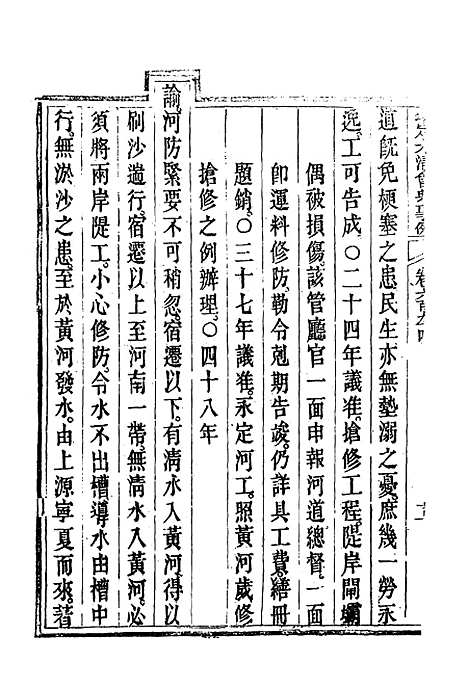 道既免梗塞之患。民生亦無墊溺之憂。庶幾一勞永
逸。工可告成。○二十四年議准。搶修工程。隄岸閘壩
偶被損傷。該管廳官一面申報河道總督。一面
卽運料修防。勒令剋期告竣。仍詳具工費。繕冊
題銷。○三十七年議准。永定河工。照黃河歲修
搶修之例辦理。○四十八年
諭。河防緊要不可稍忽。宿遷以下。有清水入黃河。得以
刷沙遄行。宿遷以上至河南一帶。無清水入黃河。必
須將兩岸隄工。小心修防。令水不出槽。導水由槽中
行。無淤沙之患。至於黃河發水。由上源寧夏而來。著